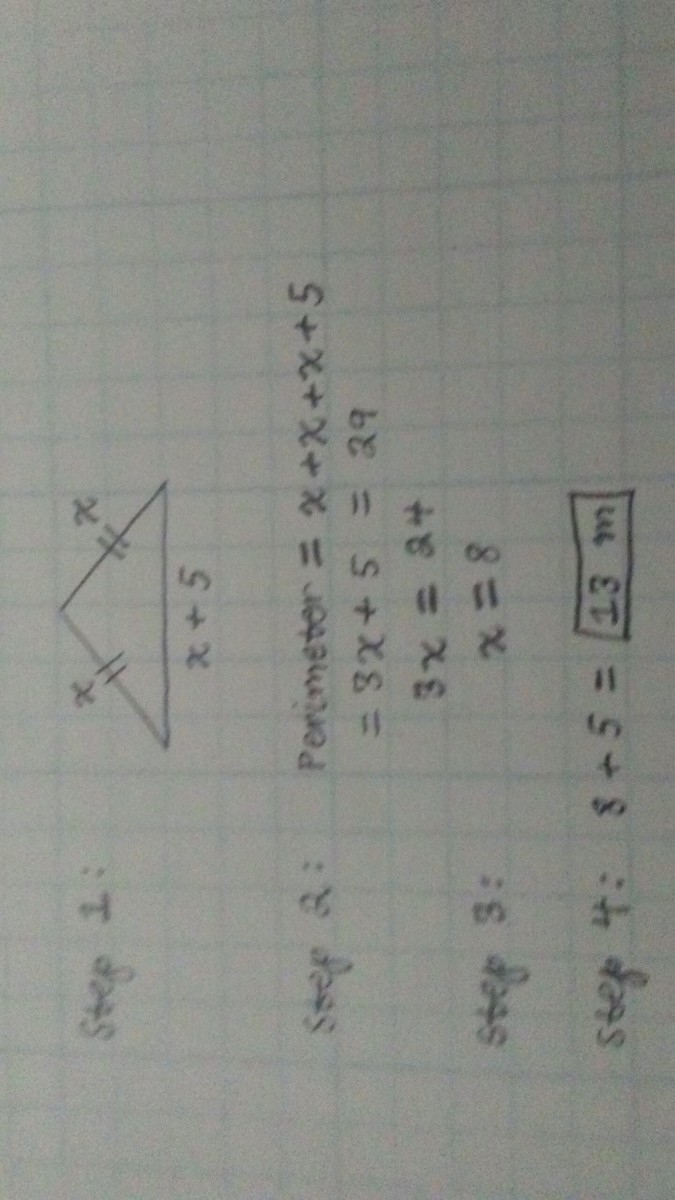 Step 1:
x x
x + 5
Step 2: Perimeter = x + x + x + 5
= 3x + 5 = 29
3x = 24
Step 3: x = 8
Step 4: 8 + 5 = 13 m